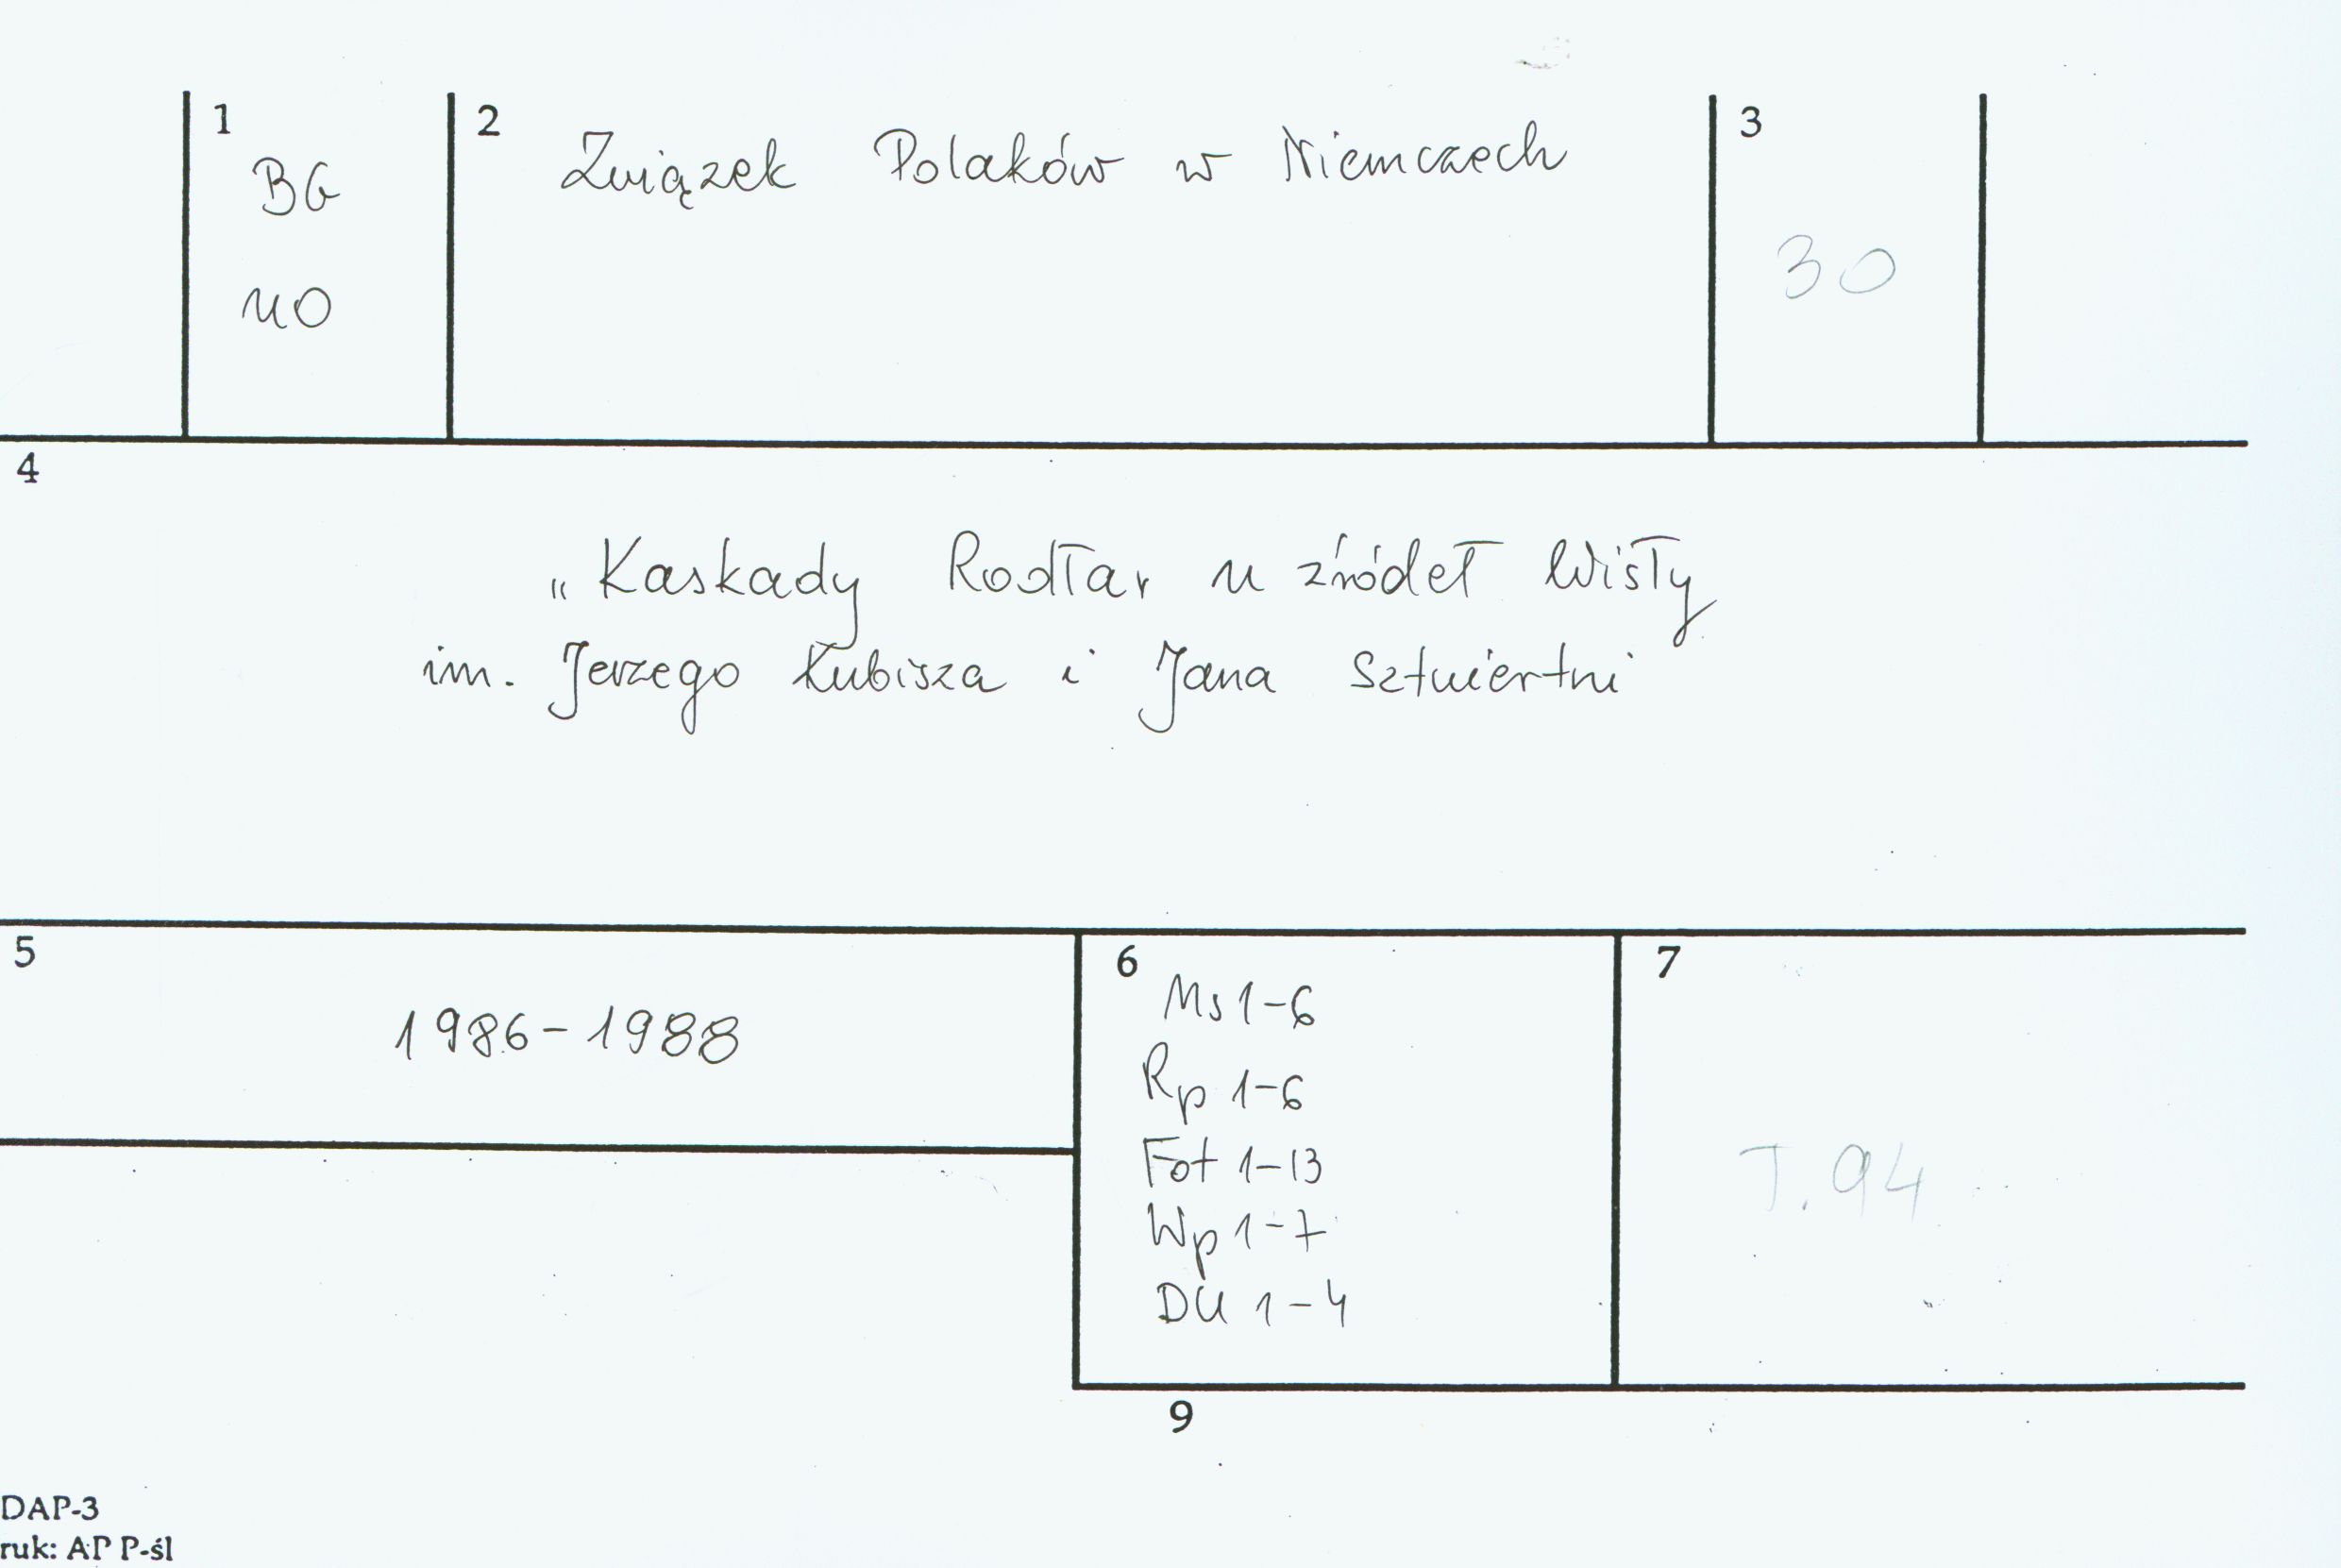 1
BG
110
2
Związek Polaków w Niemczech
3
30
4
„Kaskady Rodła" u źródeł Wisły
im. Jerzego Kubisza i Jana Sztwiertni
5
1986-1988
6
Ms 1-6
Rp 1-6
Fot 1-13
Wp 1-7
DU 1-4
7
J. 94
9
DAP-3
ruk: AP P-śl